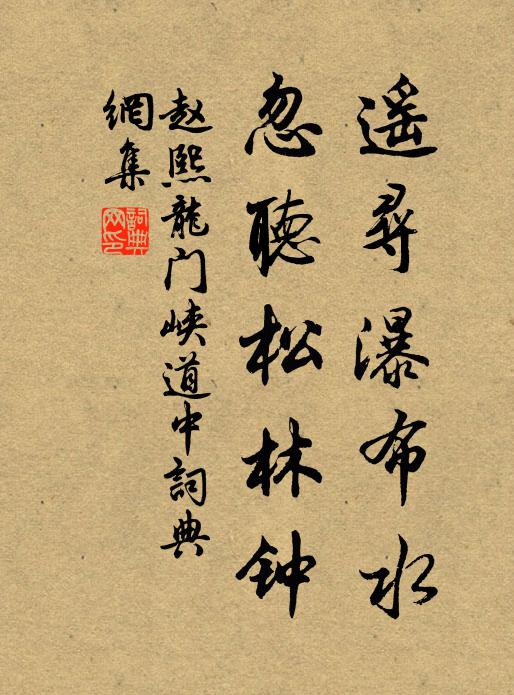 遥尋瀑布水
忽聽松林钟
赵熙龍门峡道中詞典
網集
詞典
网印